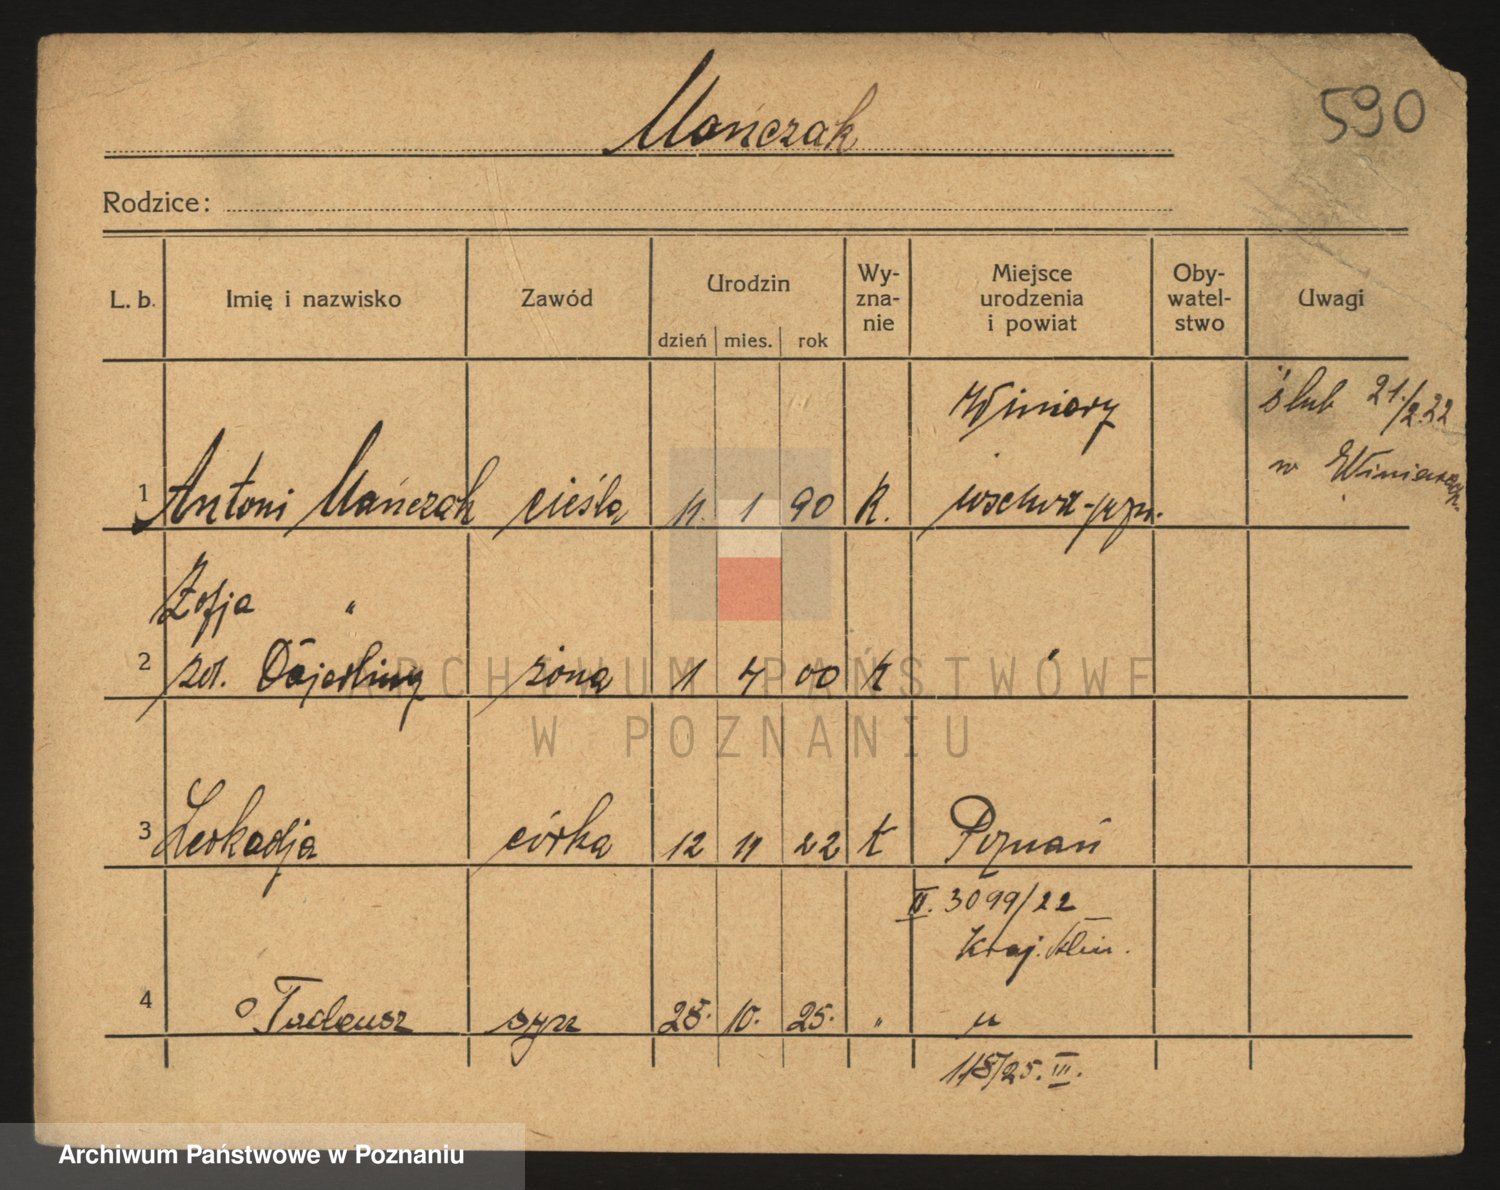 Mańczak
590
Rodzice:
L. b. Imię i nazwisko Zawód Urodzin dzień mies. rok Wy-zna-nie Miejsce urodzenia i powiat Oby-watel-stwo Uwagi
Winiary ślub 21./2.22
w Winiarach
1 Antoni Mańczak cieśla 11. 1 90 K.
Zofja "
2 żona 1 7 00 K "
3 Leokadja córka 12 11 22 K Poznań
II. 3099/22
Kraj. klin.
4 Tadeusz syn 28. 10. 25. " "
/25. III.
ARCHIWUM PAŃSTWOWE
W POZNANIU
Archiwum Państwowe w Poznaniu